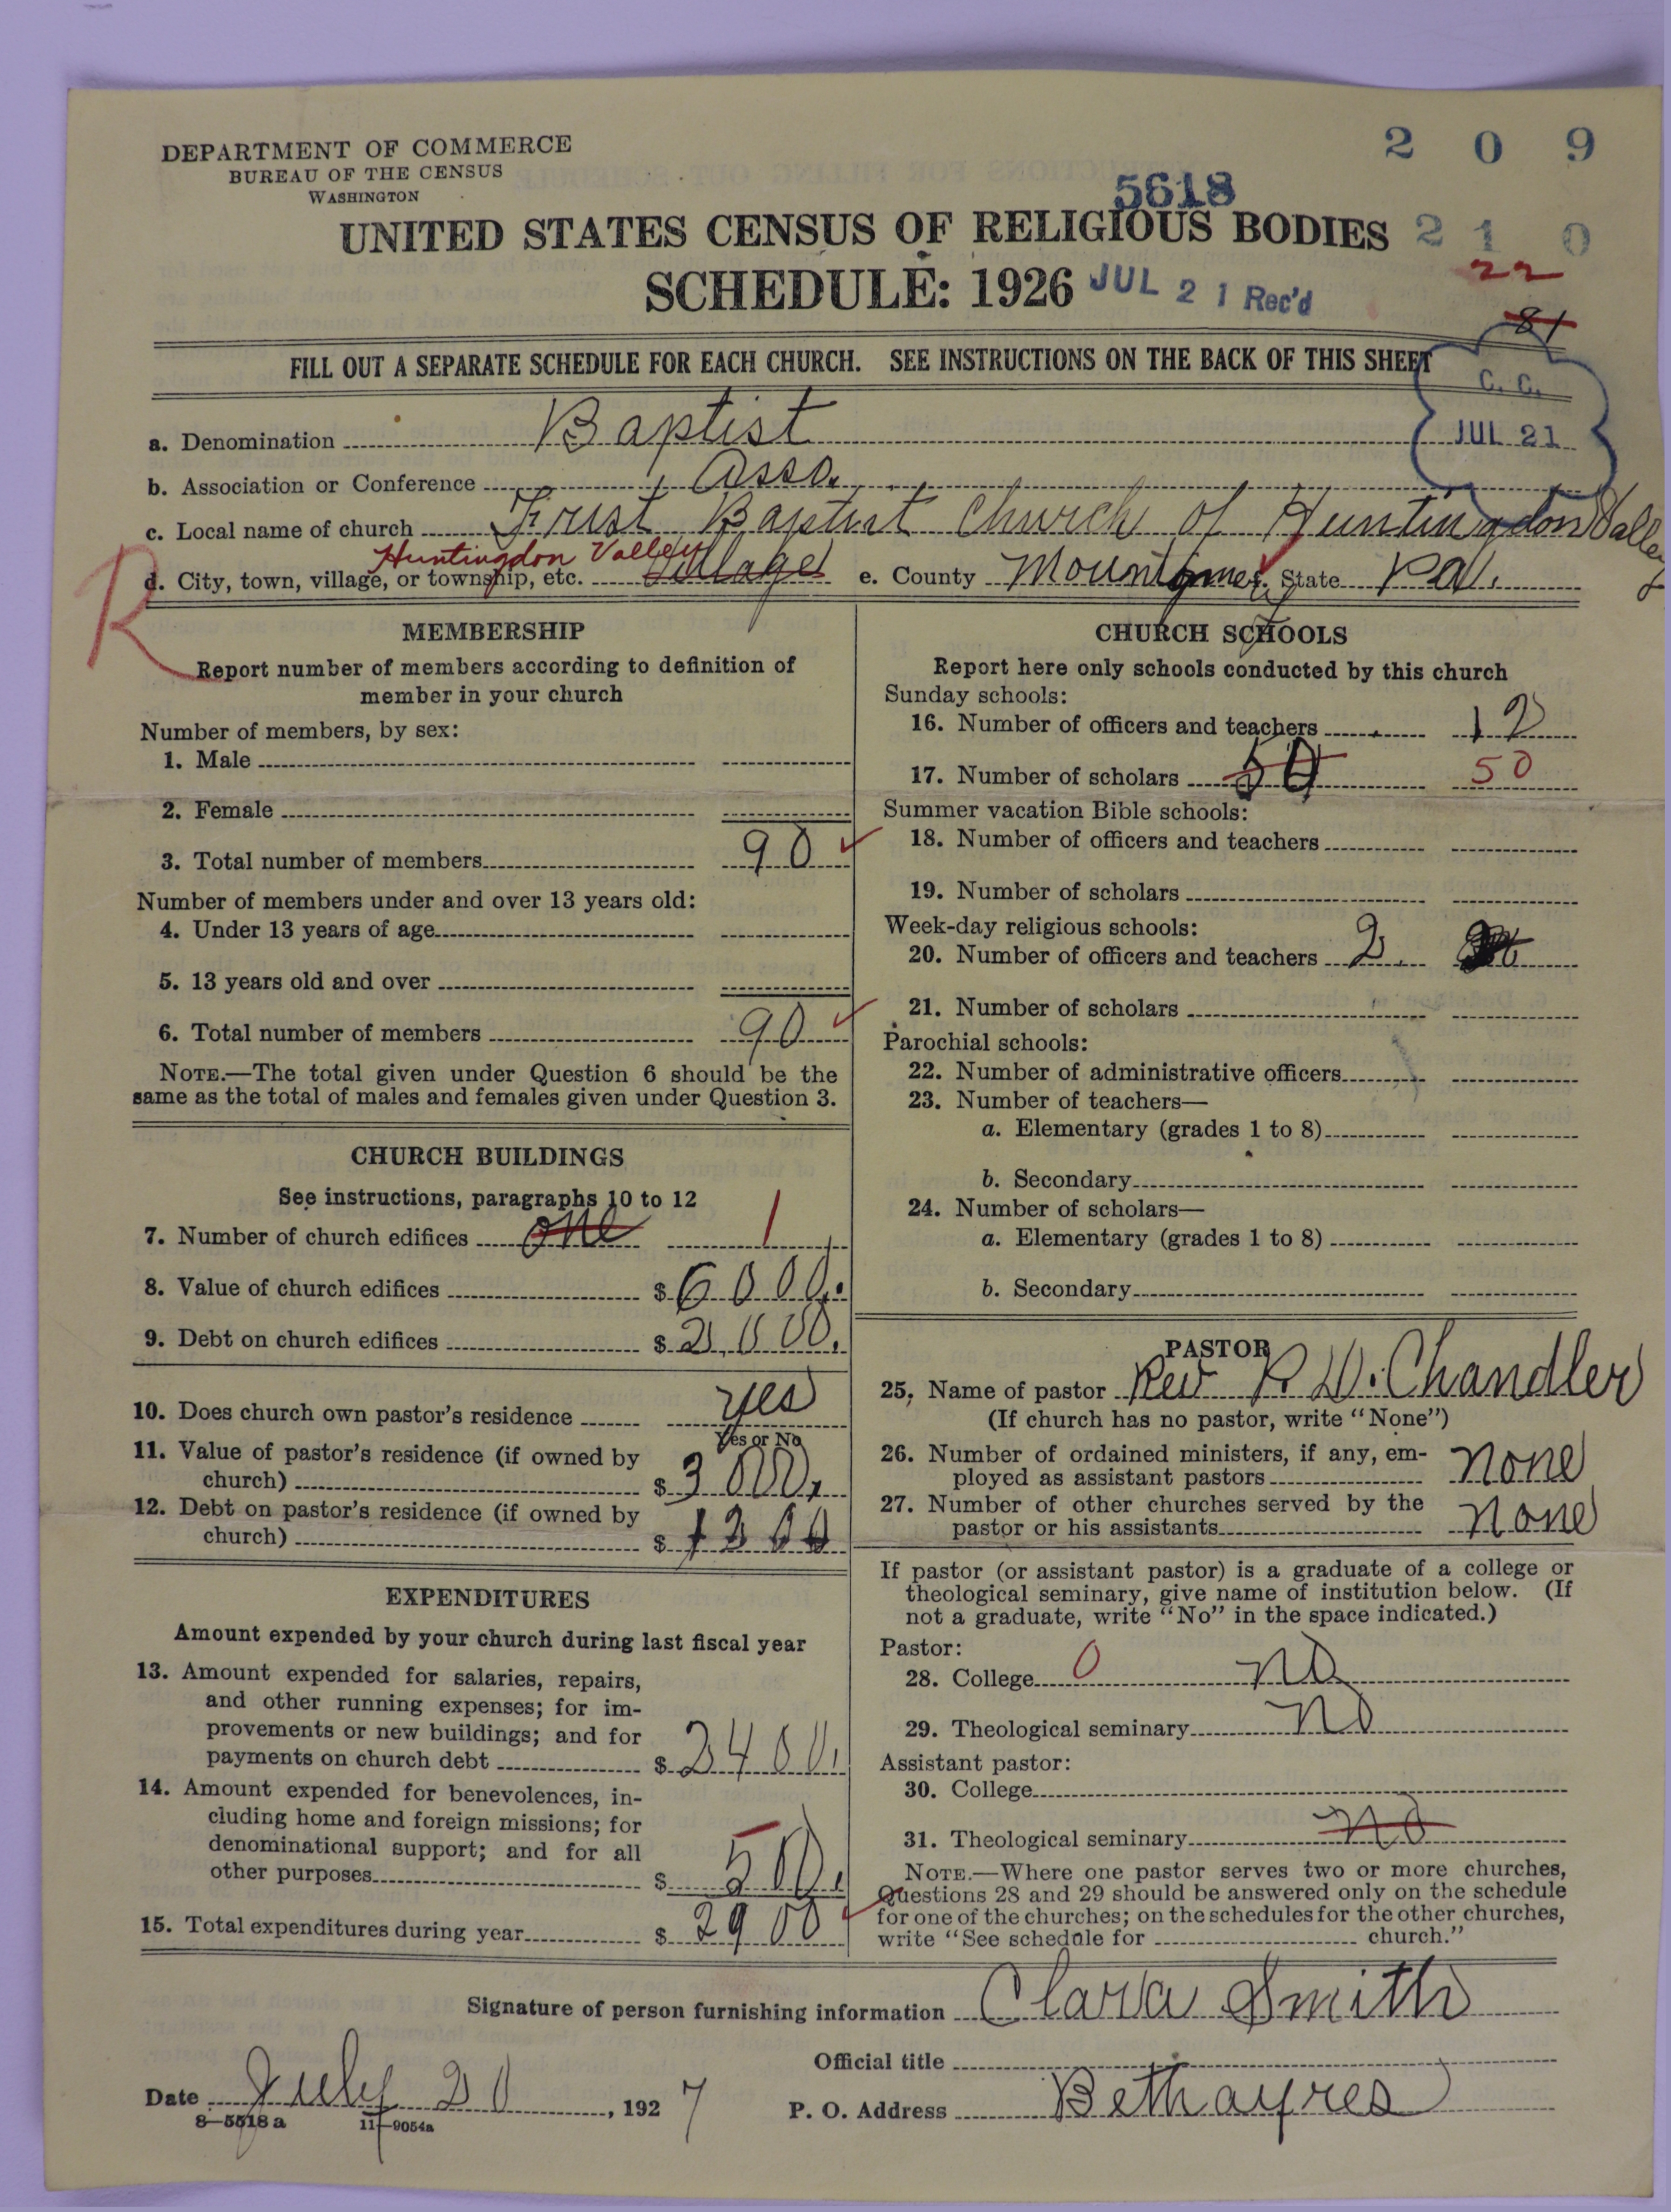 DEPARTMENT OF COMMERCE
BUREAU OF THE CENSUS
WASHINGTON
2 0 9
5618
UNITED STATES CENSUS OF RELIGIOUS BODIES
2 1 0
22
SCHEDULE: 1926
JUL 21 Rec'd
81
FILL OUT A SEPARATE SCHEDULE FOR EACH CHURCH. SEE INSTRUCTIONS ON THE BACK OF THIS SHEET
C. C.
JUL 21
a. Denomination Baptist
b. Association or Conference Asso.
c. Local name of church First Baptist Church of Huntingdon Valley
Huntingdon Valley
R
d. City, town, village, or township, etc. Village e. County State Pa.
MEMBERSHIP
Report number of members according to definition of
member in your church
Number of members, by sex:
1. Male
2. Female
3. Total number of members 90
Number of members under and over 13 years old:
4. Under 13 years of age
5. 13 years old and over
6. Total number of members 90
NOTE.—The total given under Question 6 should be the
same as the total of males and females given under Question 3.
CHURCH BUILDINGS
See instructions, paragraphs 10 to 12
7. Number of church edifices one 1
8. Value of church edifices $ 6000.
9. Debt on church edifices $ 2,000.
10. Does church own pastor's residence yes
Yes or No
11. Value of pastor's residence (if owned by
church) $ 3000.
12. Debt on pastor's residence (if owned by
church) $ 1300
EXPENDITURES
Amount expended by your church during last fiscal year
13. Amount expended for salaries, repairs,
and other running expenses; for im-
provements or new buildings; and for
payments on church debt $ 2400.
14. Amount expended for benevolences, in-
cluding home and foreign missions; for
denominational support; and for all
other purposes $ 500.
15. Total expenditures during year $ 2900
CHURCH SCHOOLS
Report here only schools conducted by this church
Sunday schools:
16. Number of officers and teachers 12
17. Number of scholars 50 50
Summer vacation Bible schools:
18. Number of officers and teachers
19. Number of scholars
Week-day religious schools:
20. Number of officers and teachers 2
21. Number of scholars
Parochial schools:
22. Number of administrative officers
23. Number of teachers—
a. Elementary (grades 1 to 8)
b. Secondary
24. Number of scholars—
a. Elementary (grades 1 to 8)
b. Secondary
PASTOR
25. Name of pastor Rev R. W. Chandler
(If church has no pastor, write "None")
26. Number of ordained ministers, if any, em-
ployed as assistant pastors none
27. Number of other churches served by the
pastor or his assistants none
If pastor (or assistant pastor) is a graduate of a college or
theological seminary, give name of institution below. (If
not a graduate, write "No" in the space indicated.)
Pastor:
28. College 0 no
29. Theological seminary no
Assistant pastor:
30. College
31. Theological seminary no
NOTE.—Where one pastor serves two or more churches,
Questions 28 and 29 should be answered only on the schedule
for one of the churches; on the schedules for the other churches,
write "See schedule for church."
Signature of person furnishing information Clara Smith
Official title
Date July 20, 1927
P. O. Address Bethayres
8—5518a 11—9054a